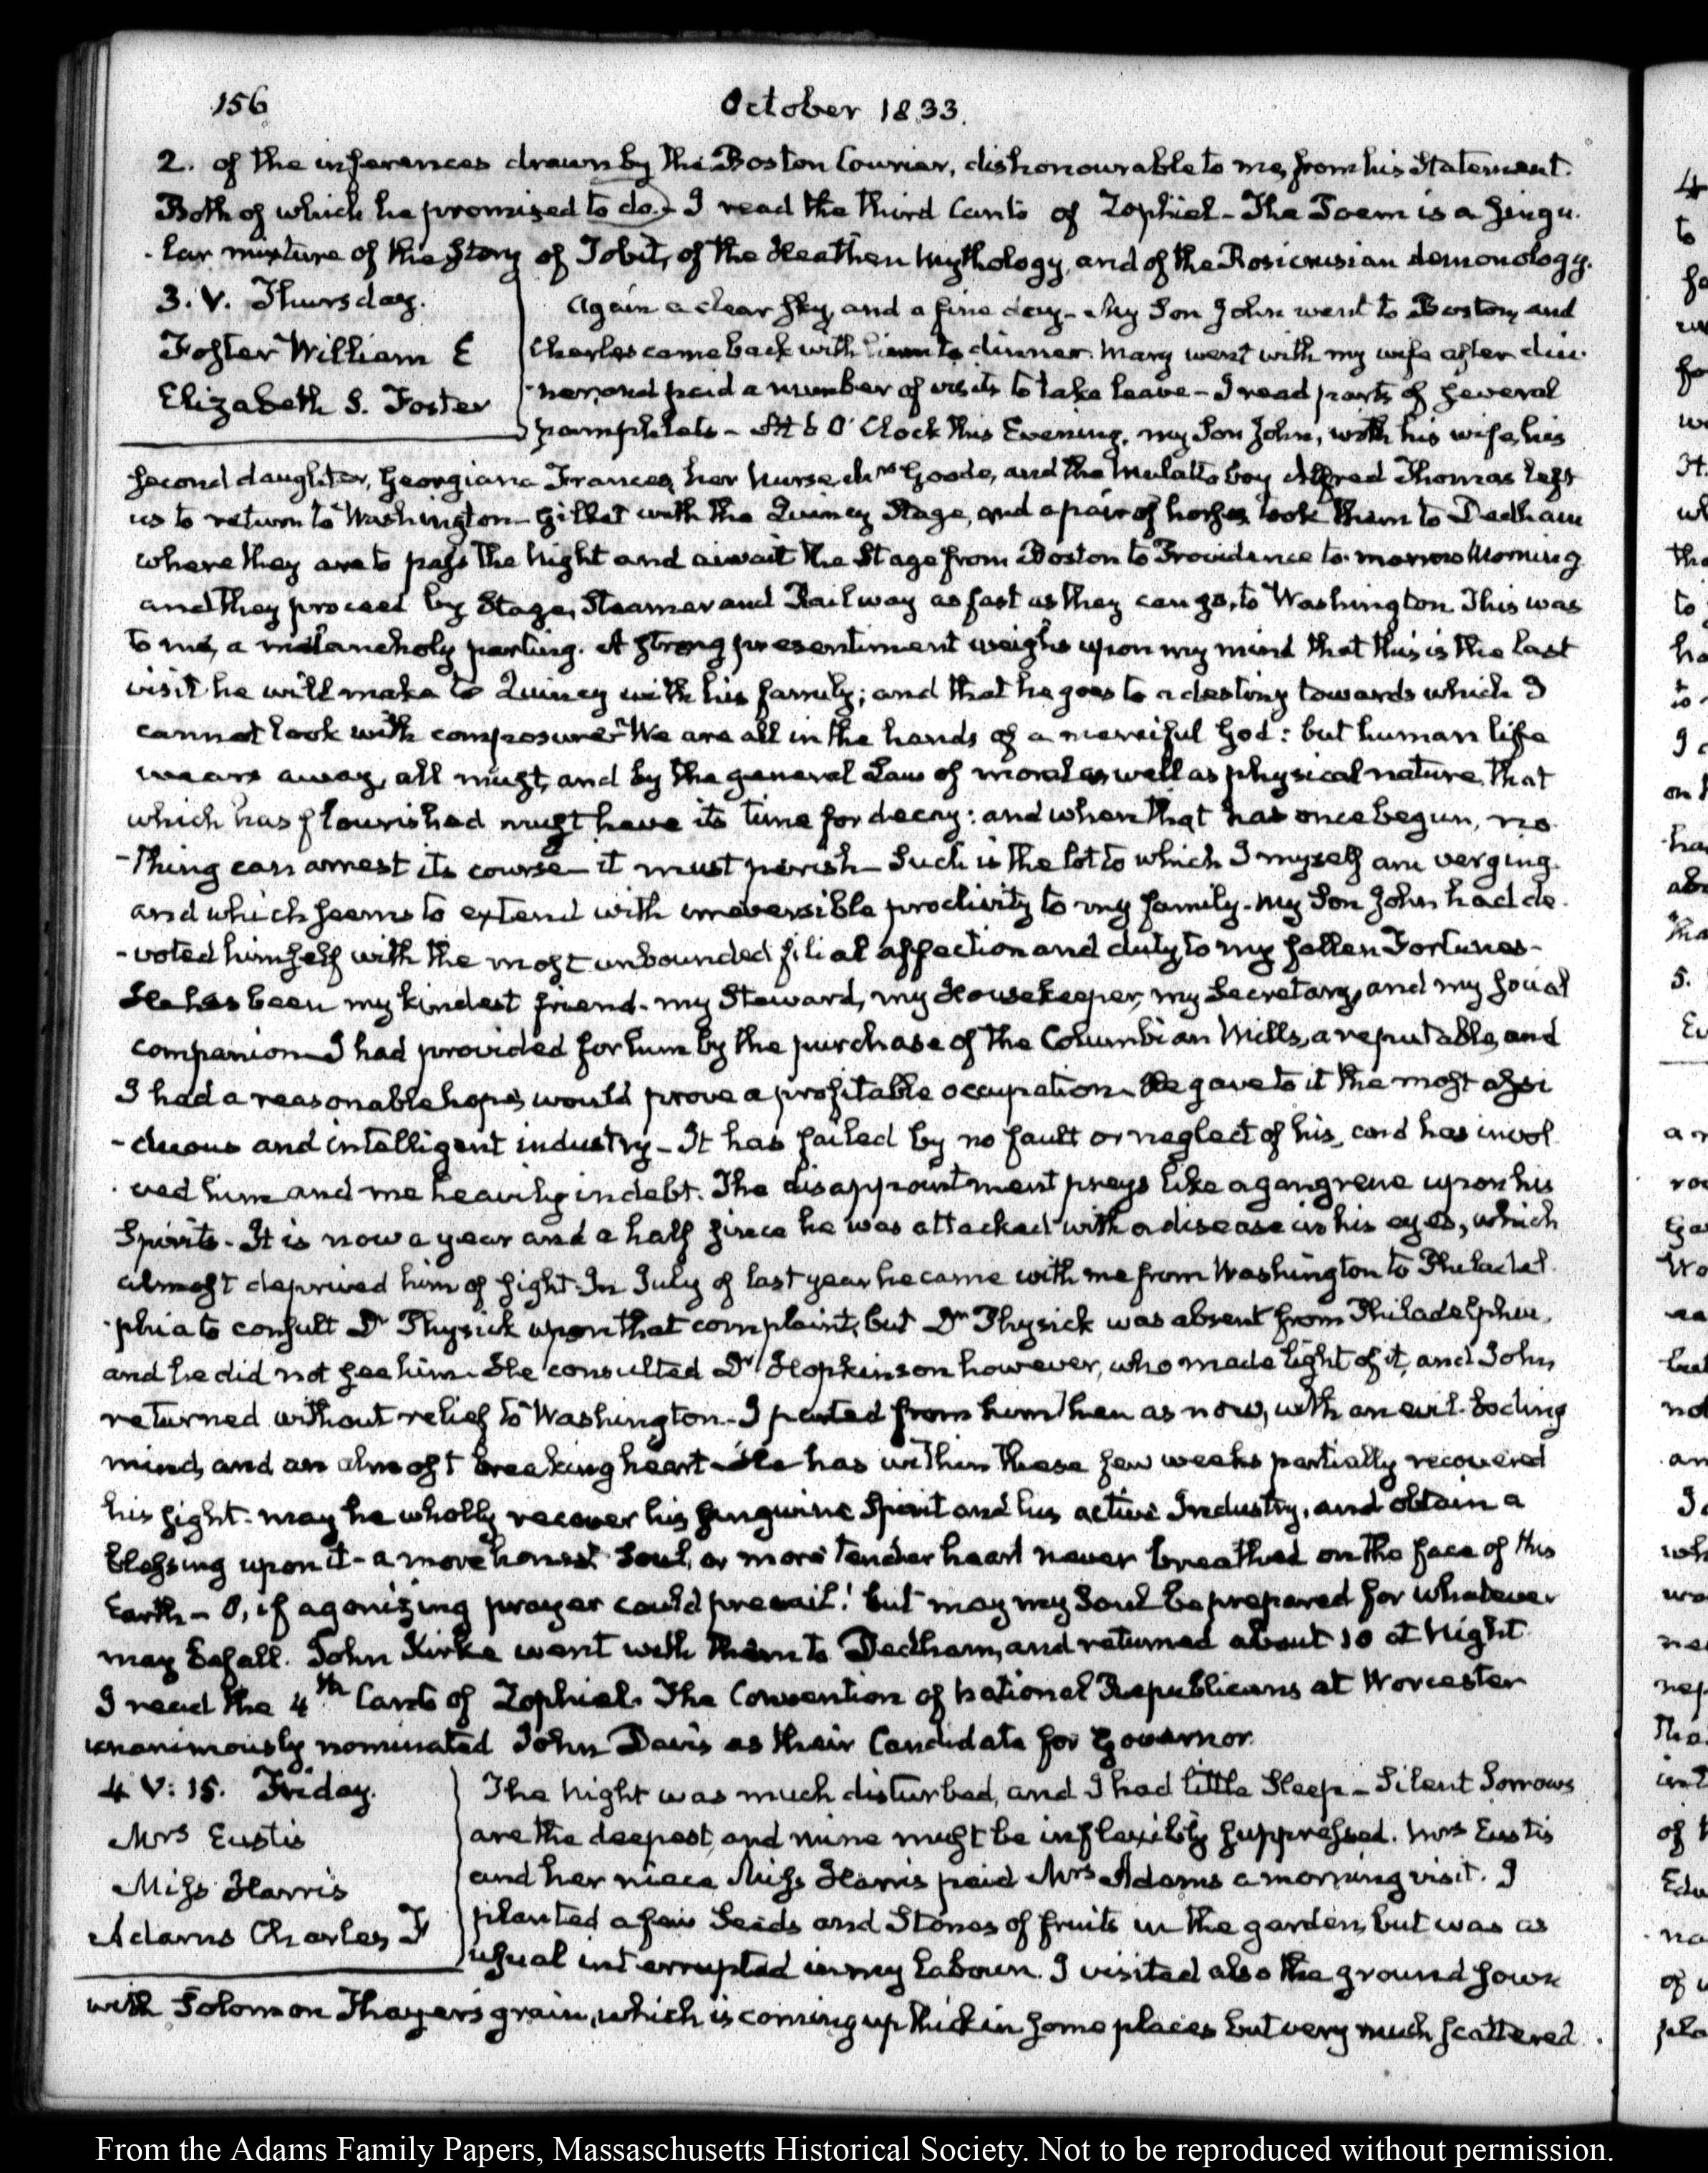 156
October 1833.
2. of the inferences drawn by the Boston Courier, dishonourable to me, from his Statement.
Both of which he promised to do.- I read the third Canto of Zophiel- The Poem is a singu-
-lar mixture of the Story of Tobit, of the Heathen Mythology, and of the Rosicrusian demonology.
3. V. Thursday.
Foster William E
Elizabeth S. Foster
Again a clear sky, and a fine day- My Son John went to Boston, and
Charles came back with him to dinner. Mary went with my wife after din-
-ner, and paid a number of visits to take leave- I read parts of several
pamphlets- At 6 O'Clock this Evening, my Son John, with his wife, his
second daughter, Georgiana Frances, her Nurse Mrs Goods, and the Mulatto boy Alfred Thomas left
us to return to Washington- Gillet with the Quincy Stage, and a pair of horses took them to Dedham
where they are to pass the Night and await the Stage from Boston to Providence to-morrow Morning
and they proceed by Stage, Steamer and Railway as fast as they can go, to Washington. This was
to me, a melancholy parting. A strong presentiment weighs upon my mind that this is the last
visit he will make to Quincy with his family; and that he goes to a destiny towards which I
cannot look with composure- We are all in the hands of a merciful God: but human life
wears away, all must, and by the general Law of moral as well as physical nature, that
which has flourished must have its time for decay: and when that has once begun, no-
-thing can arrest its course- it must perish- Such is the lot to which I myself am verging
and which seems to extend with irreversible proclivity to my family. My Son John had de-
-voted himself with the most unbounded filial affection and duty to my fallen Fortunes-
He has been my kindest friend- my Steward, my Housekeeper, my Secretary, and my social
companion- I had provided for him by the purchase of the Columbian Mills, a reputable, and
I had a reasonable hope would prove a profitable occupation- He gave to it the most assi-
-duous and intelligent industry- It has failed by no fault or neglect of his, and has invol-
-ved him and me heavily in debt. The disappointment preys like a gangrene upon his
Spirits- It is now a year and a half since he was attacked with a disease in his eyes, which
almost deprived him of sight. In July of last year he came with me from Washington to Philadel-
-phia to consult Dr Physick upon that complaint, but Dr Physick was absent from Philadelphia,
and he did not see him. He consulted Dr Hopkinson however, who made light of it, and John
returned without relief to Washington- I parted from him then as now, with an evil-boding
mind, and an almost breaking heart- He has within these few weeks partially recovered
his sight- may he wholly recover his sanguine Spirit and his active Industry, and obtain a
blessing upon it- a more honest Soul, or more tender heart never breathed on the face of this
Earth- O, if agonizing prayer could prevail! but may my Soul be prepared for whatever
may befall. John Kirke went with them to Dedham, and returned about 10 at Night.
I read the 4th Canto of Zophiel. The Convention of National Republicans at Worcester
unanimously nominated John Davis as their Candidate for Governor.
4 V: 15. Friday.
Mrs Eustis
Miss Harris
Adams Charles F
The Night was much disturbed, and I had little Sleep- Silent Sorrows
are the deepest, and mine must be inflexibly suppressed. Mrs Eustis
and her niece Miss Harris paid Mrs Adams a morning visit. I
planted a few Seeds and Stones of fruits in the garden, but was as
usual interrupted in my labour. I visited also the ground sown
with Solomon Thayer's grain, which is coming up thick in some places but very much scattered
From the Adams Family Papers, Massaschusetts Historical Society. Not to be reproduced without permission.